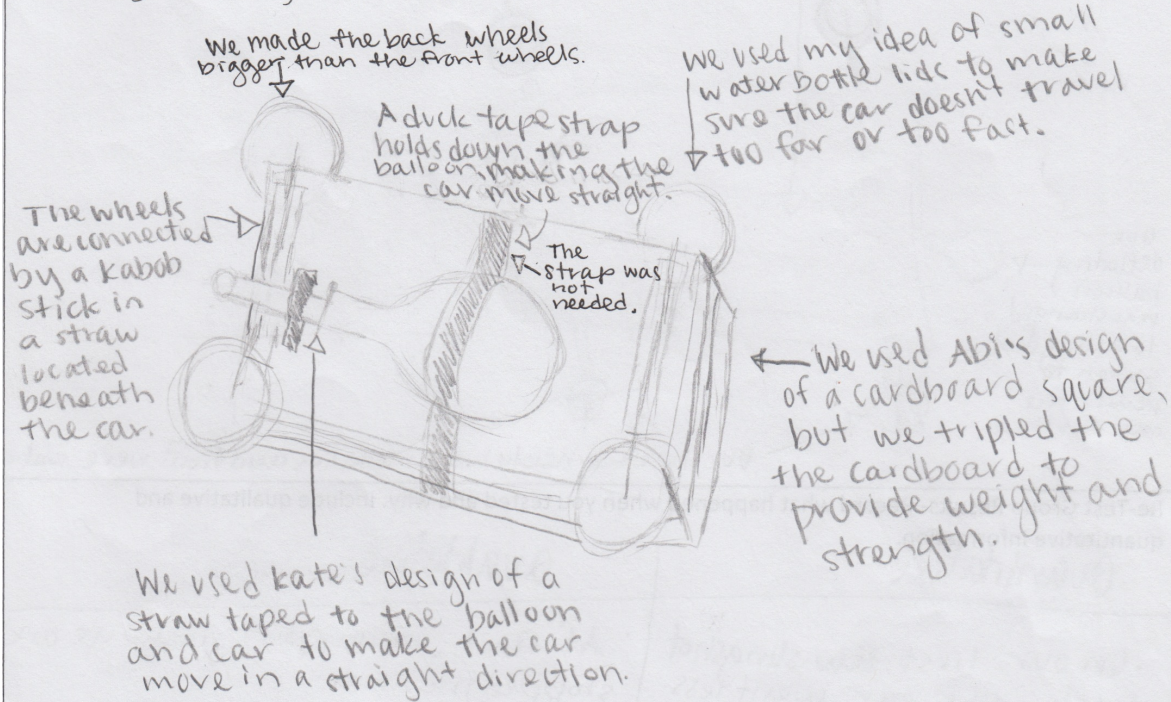 We made the back wheels
bigger than the front wheels.
we used my idea of small
water bottle lids to make
sure the car doesn't travel
too far or too fact.
A duck tape strap
holds down the
balloon, making the
car move straight.
The wheels
are connected
by a kabob
stick in
a straw
located
beneath
the car.
The
strap was
not
needed.
We used Abi's design
of a cardboard square,
but we tripled the
the cardboard to
provide weight and
strength.
We used kate's design of a
straw taped to the balloon
and car to make the car
move in a straight direction.